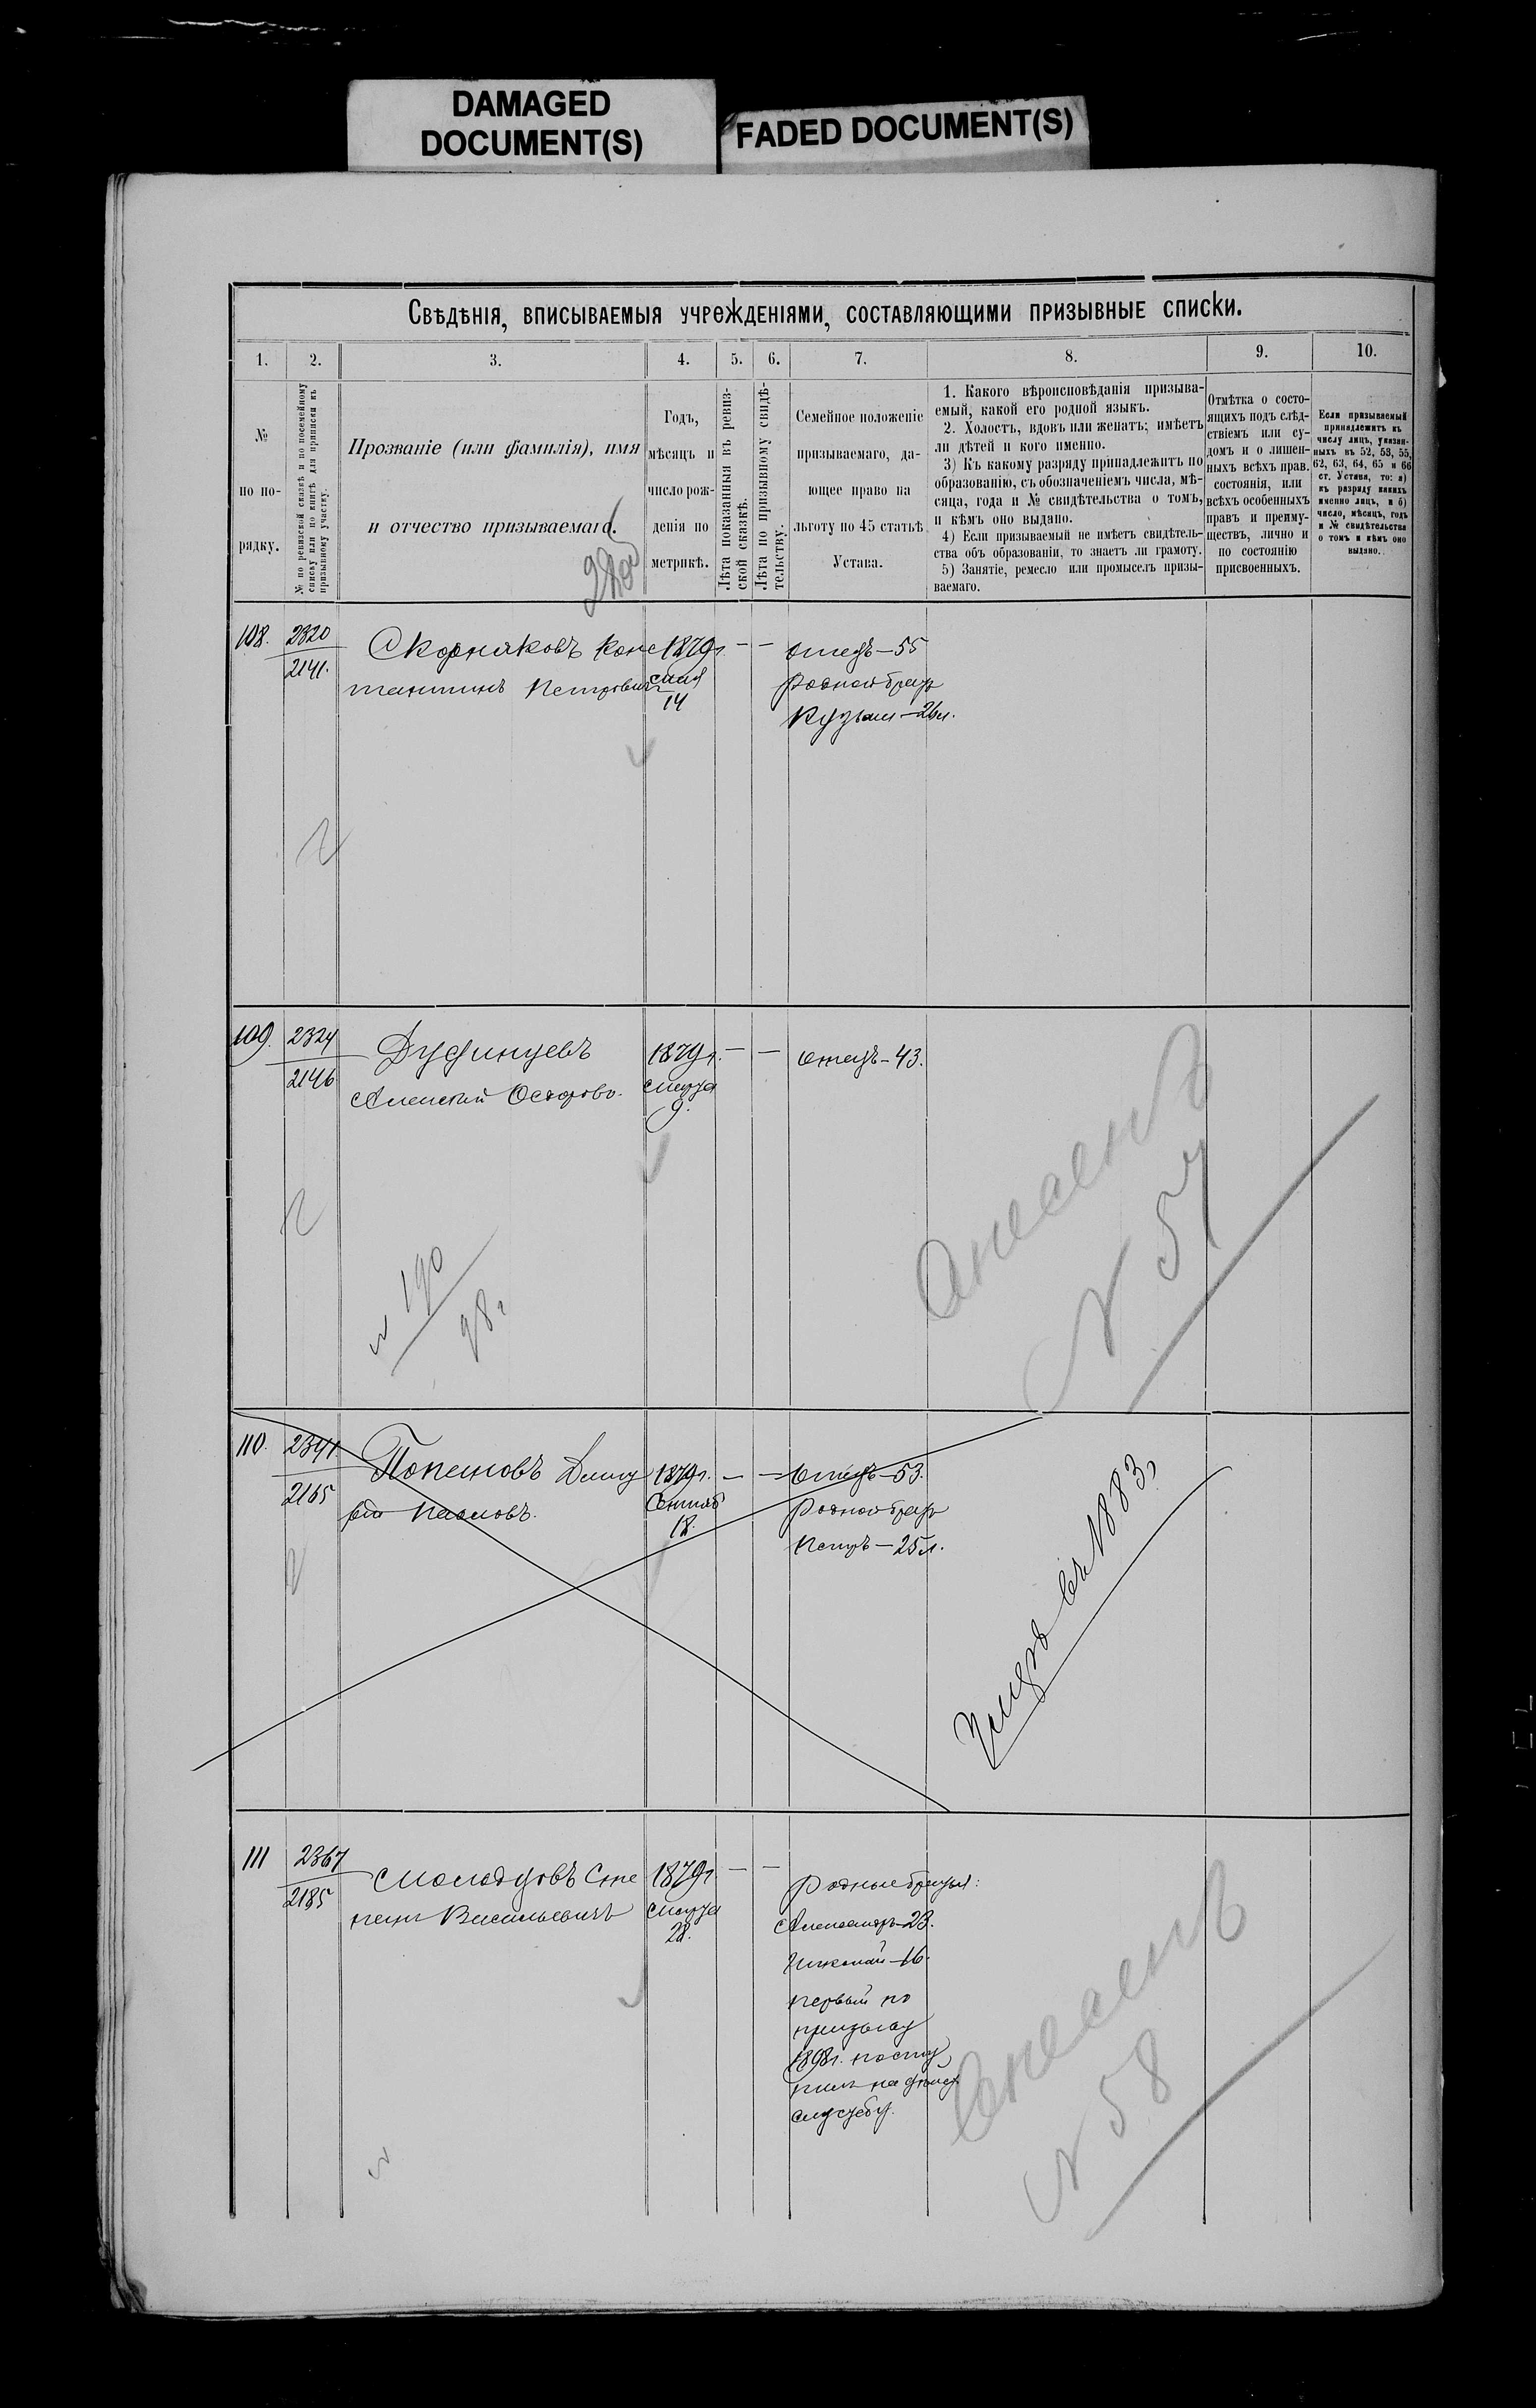 DAMAGED
DOCUMENT(S)
FADED DOCUMENT(S)
Свѣдѣнія, вписываемыя учрежденіями, составляющими призывные списки.
1.
2.
3.
4.
5.
6.
7.
8.
9.
10.
№
по по-
рядку.
№ по ревизской сказкѣ и по посемейному
списку или по книгѣ для приписки къ
призывному участку.
Прозваніе (или фамилія), имя
и отчество призываемаго.
Годъ,
мѣсяцъ и
число рож-
денія по
метрикѣ.
Лѣта показанныя въ ревиз-
ской сказкѣ.
Лѣта по призывному свидѣ-
тельству.
Семейное положеніе
призываемаго, да-
ющее право на
льготу по 45 статьѣ
Устава.
1. Какого вѣроисповѣданія призыва-
емый, какой его родной языкъ.
2. Холостъ, вдовъ или женатъ; имѣетъ
ли дѣтей и кого именно.
3) Къ какому разряду принадлежитъ по
образованію, съ обозначеніемъ числа, мѣ-
сяца, года и № свидѣтельства о томъ,
и кѣмъ оно выдано.
4) Если призываемый не имѣетъ свидѣтель-
ства объ образованіи, то знаетъ ли грамоту.
5) Занятіе, ремесло или промыселъ призы-
ваемаго.
Отмѣтка о состо-
ящихъ подъ слѣд-
ствіемъ или су-
домъ и о лишен-
ныхъ всѣхъ прав.
состоянія, или
всѣхъ особенныхъ
правъ и преиму-
ществъ, лично и
по состоянію
присвоенныхъ.
Если призываемый
принадлежитъ къ
числу лицъ, указан-
ныхъ въ 52, 53, 55,
62, 63, 64, 65 и 66
ст. Устава, то: а)
къ разряду какихъ
именно лицъ, и б)
число, мѣсяцъ, годъ
и № свидѣтельства
о томъ и кѣмъ оно
выдано.
108.
2320
2141.
Скорняковъ Конс
тантинъ Петровичъ
1879г.
мая
14
— —
отецъ—55
родной братъ
Кузьма—26л.
109.
2324
2146
Дудинцевъ
Алексѣй Ѳедоров.
1879г.
марта
9.
— —
отецъ—43.
№ 190
98г
Внесенъ
№ 57
110.
2341
2165
Попеновъ Дмит
рій Павловъ.
1879г.
Сентяб
18.
— —
отецъ—53.
родной братъ
Петръ—25л.
Умеръ въ 1883,
111
2367
2185
Молодцовъ Сте
панъ Васильевичъ
1879г
марта
28.
— —
родные братья:
Александръ—23.
Николай—16.
первый по
призыву
1898г. посту
пилъ на дѣйст.
службу.
Внесенъ
№ 58